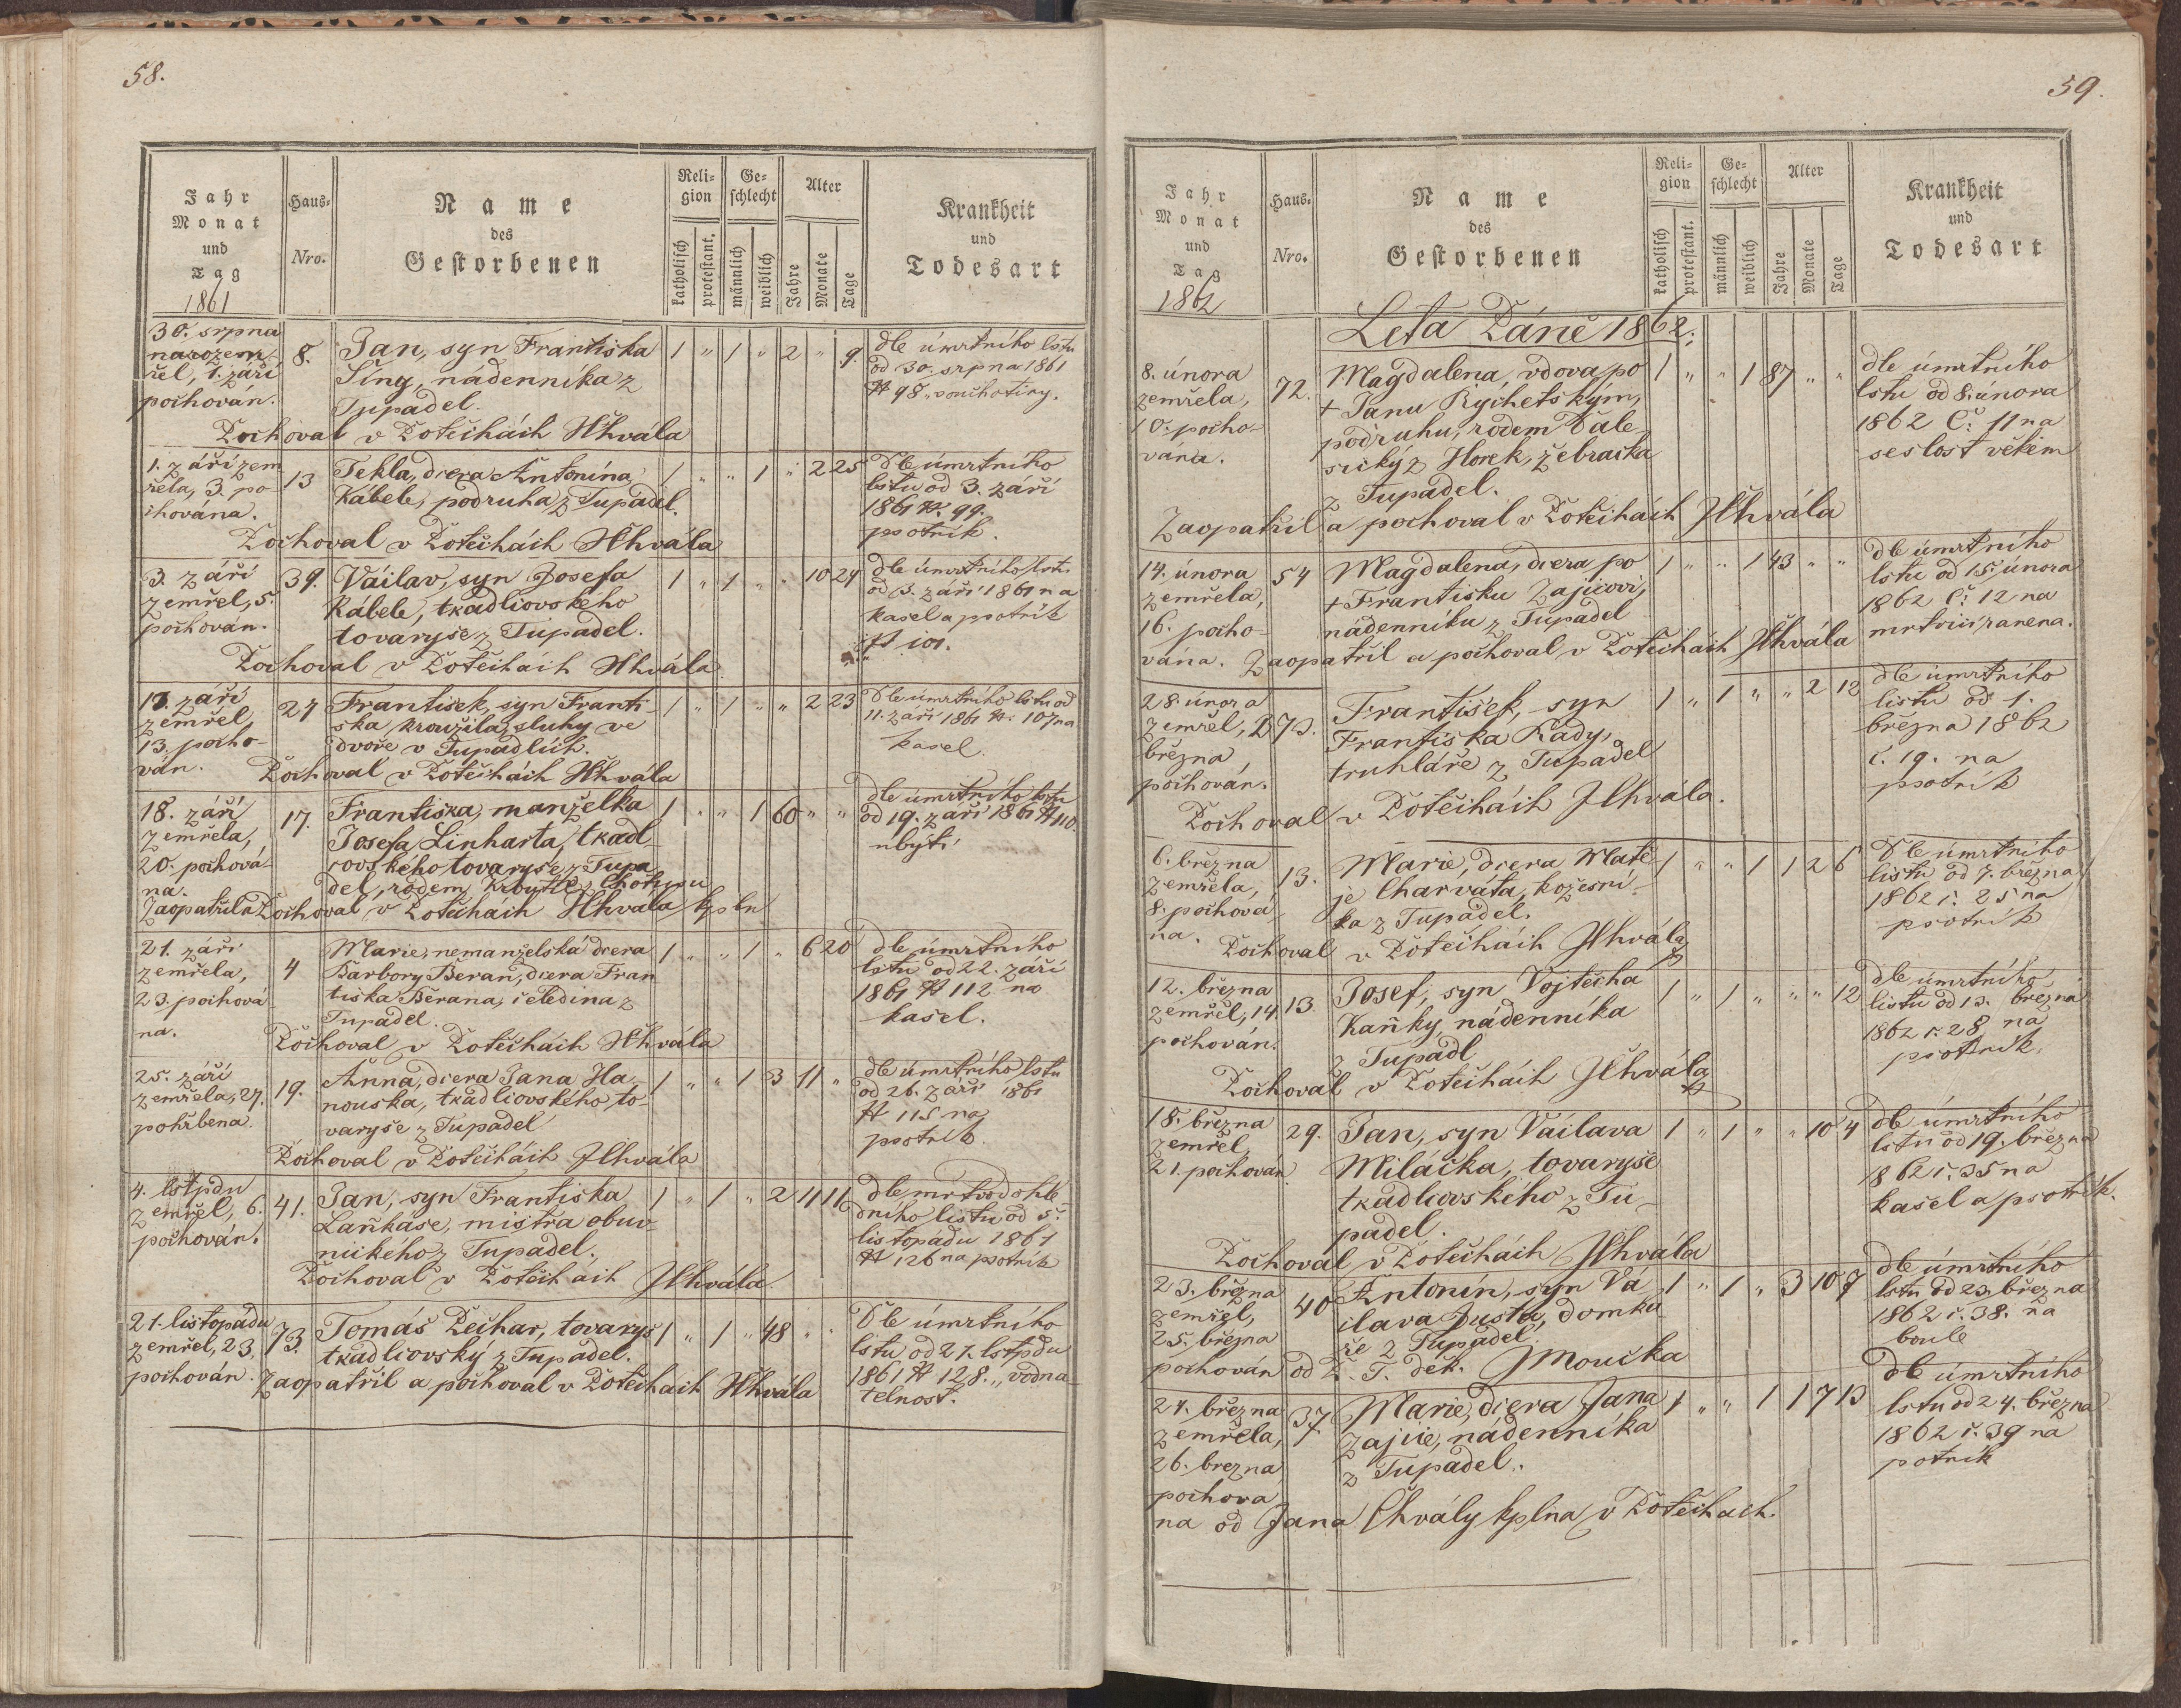 58.
Jahr Monat und Tag
1861
Haus- Nro.
Name des Gestorbenen
Religion
katholisch
protestant.
Geschlecht
männlich
weiblich
Alter
Jahre
Monate
Tage
Krankheit und Todesart
30. srpna
pochován.
8.
Jan, syn Františka
nádenníka z
Tupadel.
1 " 1 " 2 " 9.
dle úmrtního lstu
od 30. srpna 1861
№ 98.
Pochoval v Potěchách JChvála
1. září zem
řela, 3. po
chována.
13
Tekla, dcera Antonína
Kábele, podruha z Tupadel.
1 " " 1 " 2 25
Dle úmrtního
lstu od 3. září
1861 №. 99.
psotník.
Pochoval v Potěchách JChvála
3. září
zemřel, 5.
pochován.
39.
Václav, syn Josefa
Kábele, tkadlcovského
tovaryše z Tupadel.
1 " 1 " " 10 24
dle úmrtního lstu
od 3. září 1861 na
kašel a psotník
№ 101.
Pochoval v Potěchách JChvála
září
zemřel,
13. pocho-
ván.
27
František, syn Franti-
ška Kroužila, sluhy ve
dvoře v Tupadlích.
1 " 1 " " 2 23
Dle úmrtního lstu od
11. září 1861 №. 107 na
kašel.
Pochoval v Potěchách JChvála
18. září
zemřela,
20. pochová-
na.
17.
Františka, manželka
Josefa Linharta, tkadl-
covského tovaryše z Tupa
del, rodem
1 " " 1 60 " "
dle úmrtního lstu
od 19. září 1861 № 110.
ubytí
Pochoval v Potěchách JChvála kpln
21. září
zemřela,
23. pochová
na.
4
Marie, nemanželská dcera
Barbory Beran, dcera Fran
tiška Berana, čeledína z
Tupadel.
1 " " 1 " 6 20
dle úmrtního
lstu od 22. září
1861 № 112 na
kašel.
Pochoval v Potěchách JChvála
25. září
zemřela, 27.
pohřbena.
19.
Anna, dcera Jana Ha-
nouska, tkadlcovského to-
varyše z Tupadel
1 " " 1 3 11 "
dle úmrtního lstu
od 26. září 1861
№ 115 na
psotník.
Pochoval v Potěchách JChvála
4. lstpdu
zemřel, 6.
pochován.
41.
Jan, syn Františka
Laňkáše, mistra obuv-
nického z Tupadel.
1 " 1 " 2 11 11
dle mrtvoohle-
dního listu od 5.
listopadu 1861
№ 126 na psotník
Pochoval v Potěchách JChvála
21. listopadu
zemřel, 23.
pochován.
73.
Tomáš Pechar, tovaryš
tkadlcovský z Tupadel.
1 " 1 " 48 " "
Dle úmrtního
lstu od 21. lstpdu
1861 № 128. „vodna-
telnost.
Zaopatřil a pochoval v Potěchách JChvála
59.
Jahr Monat und Tag
1862
Haus- Nro.
Name des Gestorbenen
Religion
katholisch
protestant.
Geschlecht
männlich
weiblich
Alter
Jahre
Monate
Tage
Krankheit und Todesart
Léta Páně 1862:
8. února
zemřela,
10. pocho-
vána.
72.
Magdalena, vdova po
+ Janu Rychetským,
podruhu, rodem
z Horek, žebračka
z Tupadel.
1 " " 1 87 " "
dle úmrtního
lstu od 8. února
1862 č. 11 na
seslost věkem
Zaopatřil a pochoval v Potěchách JChvála
14. února
zemřela,
16. pocho-
vána.
54
Magdalena, dcera po
+ Františku Zajícovi,
nádenníku z Tupadel
1 " " 1 43 " "
dle úmrtního
lstu od 15. února
1862 č. 12 na
mrtvicí raněna.
Zaopatřil a pochoval v Potěchách JChvála
28. února
zemřel, 2
března
pochován.
73.
František, syn
Františka Kády,
truhláře z Tupadel
1 " 1 " " 2 12
dle úmrtního
listu od 1.
března 1862
č. 19. na
psotník
Pochoval v Potěchách JChvála.
6. března
zemřela,
8. pochová
na.
13.
Marie, dcera Matě
je Charváta, kožešní-
ka z Tupadel.
1 " " 1 1 2 6
Dle úmrtního
listu od 7. března
1862 č. 25 na
psotník
Pochoval v Potěchách JChvála
12. března
zemřel, 14.
pochován.
13
Josef, syn Vojtěcha
Kaňky, nádenníka
z Tupadl
1 " 1 " " " 12
dle úmrtního
listu od 13. března
1862 č. 28 na
psotník.
Pochoval v Potěchách JChvála
18. března
zemřel,
21. pochován
29.
Jan, syn Václava
Miláčka, tovaryše
tkadlcovského z Tu-
padel.
1 " 1 " " 10 4
dle úmrtního
lstu od 19. března
1862 č. 35 na
kašel a psotník.
Pochoval v Potěchách JChvála
23. března
zemřel,
25. března
pochován od P. T. děk. JMoučka
40
Antonín, syn Vá
clava Justa, domká
ře z Tupadel.
1 " 1 " 3 10 7
dle úmrtního
lstu od 23. března
1862 č. 38. na
boule
24. března
zemřela,
26. března
pochova
na od Jana Chvály kplna v Potěchách.
37.
Marie, dcera Jana
Zajíce, nádenníka
z Tupadel.
1 " " 1 1 7 13
dle úmrtního
lstu od 24. března
1862 č. 39 na
potník